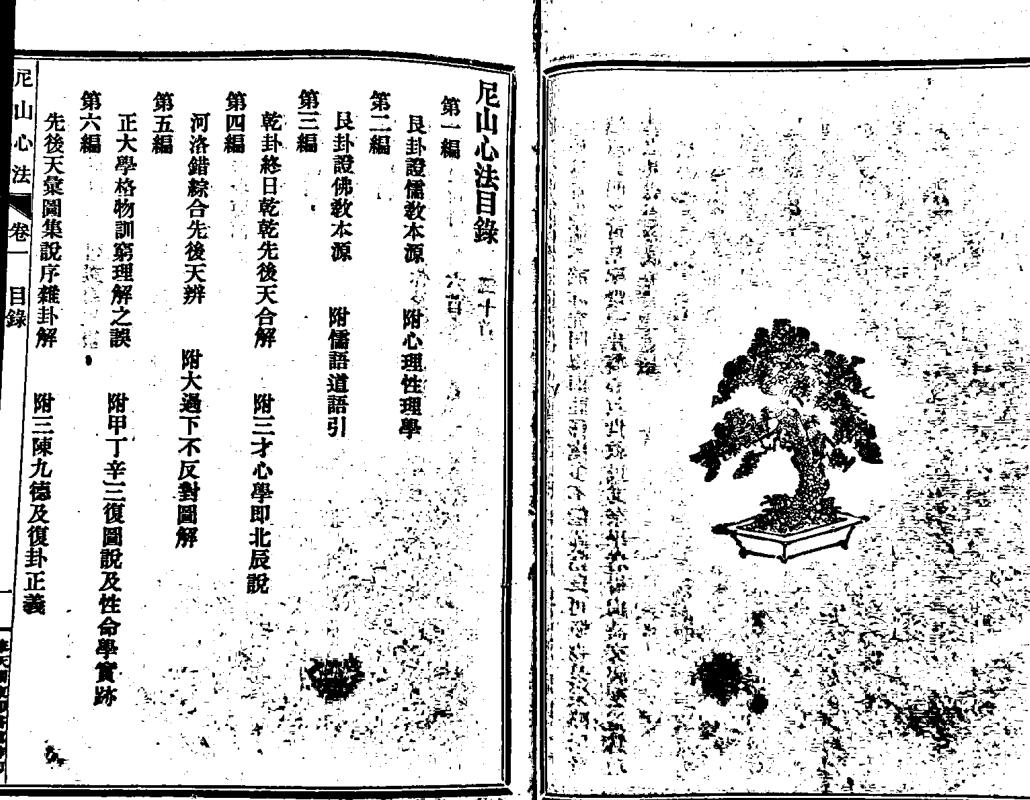 尼山心法目錄
第一編
艮卦證儒敎本源　附心理性理學
第二編
艮卦證佛敎本源　附儒語道語引
第三編
乾卦終日乾乾先後天合解　附三才心學即北辰說
第四編
河洛錯綜合先後天辨　附大過下不反對圖解
第五編
正大學格物訓窮理解之誤　附甲丁辛三復圖說及性命學實跡
第六編
先後天彙圖集說序雜卦解　附三陳九德及復卦正義
尼山心法　卷一　目錄